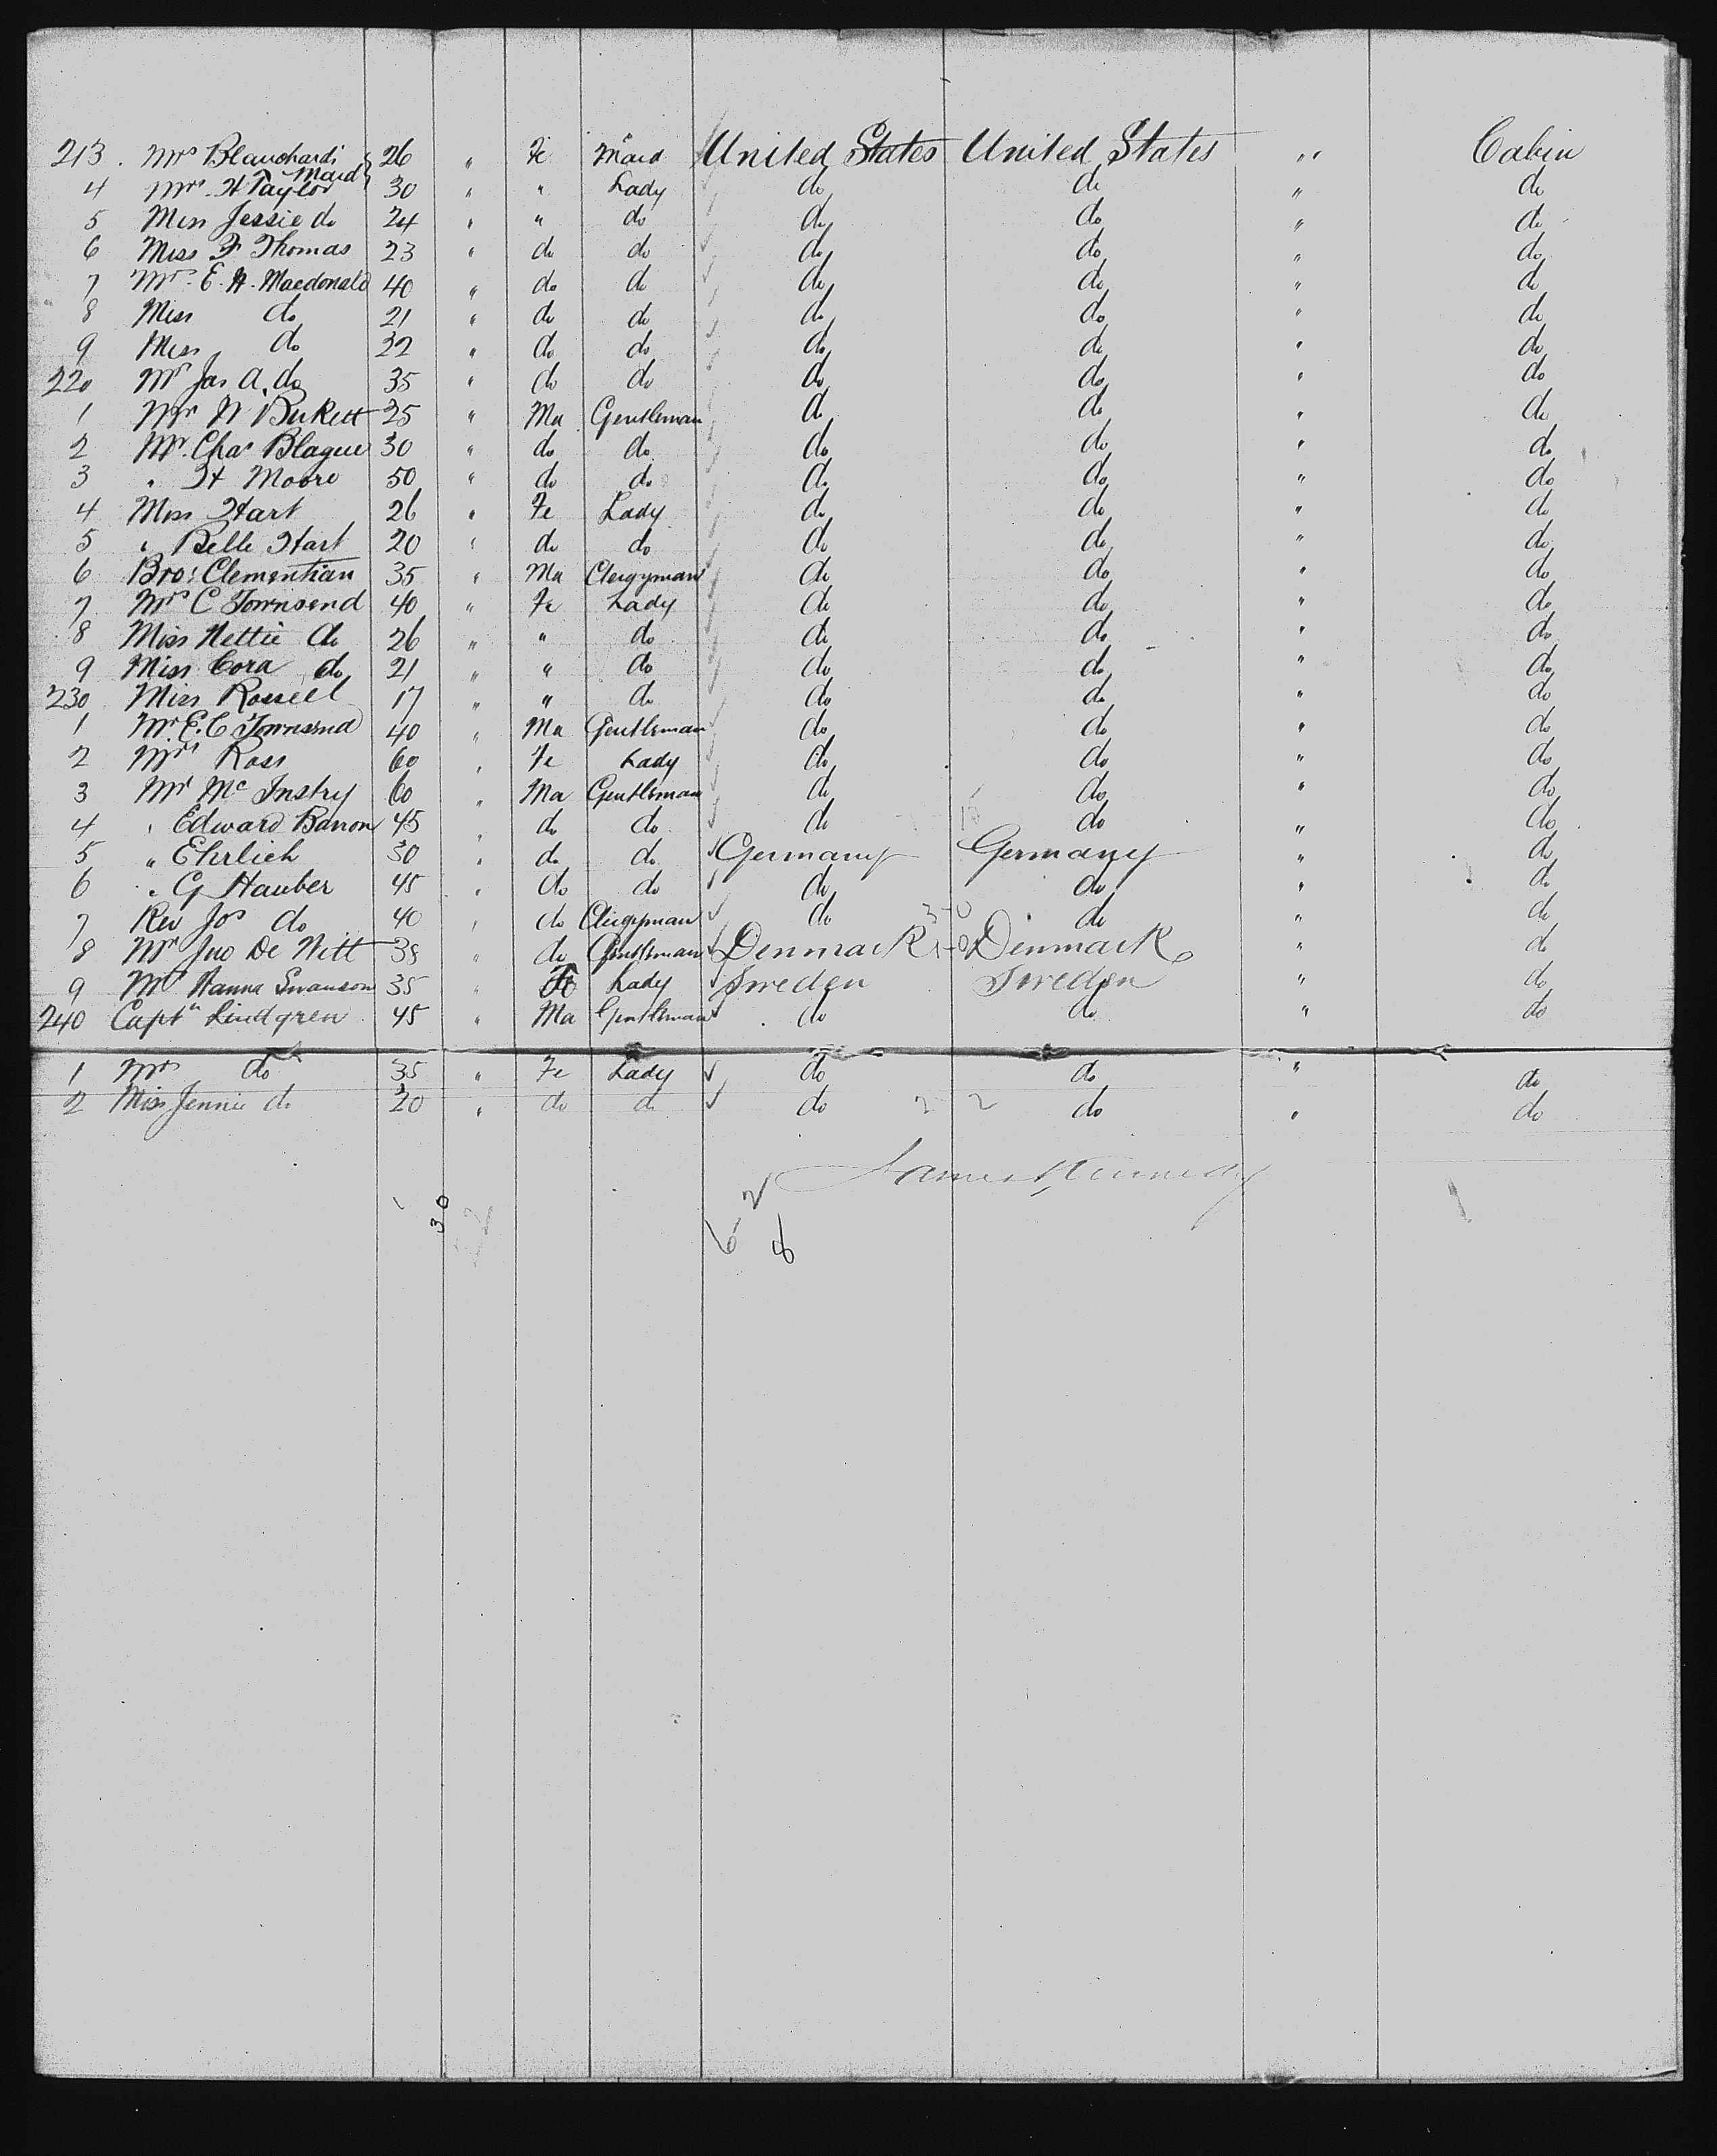 213. Mrs Blanchard's Maid 26 " Fe Maid United States United States " Cabin
4 Mrs. H Taylor 30 " " Lady do do " do
5 Miss Jessie do 24 " " do do do " do
6 Miss F Thomas 23 " do do do do " do
7 Mrs. E. H. Macdonald 40 " do do do do " do
8 Miss do 21 " do do do do " do
9 Miss do 22 " do do do do " do
220 Mrs Jas A. do 35 " do do do do " do
1 Mr N Burkett 25 " Ma Gentleman do do " do
2 Mr. Chas Blague 30 " do do do do " do
3 " H Moore 50 " do do do do " do
4 Miss Hart 26 " Fe Lady do do " do
5 " Belle Hart 20 " do do do do " do
6 Bro: Clementian 35 " Ma Clergyman do do " do
7 Mrs C Townsend 40 " Fe Lady do do " do
8 Miss Nettie do 26 " " do do do " do
9 Miss Cora do 21 " " do do do " do
230 Miss Rossell 17 " " do do do " do
1 Mr E. C Townsend 40 " Ma Gentleman do do " do
2 Mrs Ross 60 " Fe Lady do do " do
3 Mr Mc Instry 60 " Ma Gentleman do do " do
4 " Edward Barron 45 " do do do do " do
5 " Ehrlich 30 " do do Germany Germany " do
6 " G Hauber 45 " do do do do " do
7 Rev Jos do 40 " do Clergyman do do " do
8 Mr Jno De Witt 38 " do Gentleman Denmark Denmark " do
9 Mrs Hanna Swanson 35 " Fe Lady Sweden Sweden " do
240 Captn Lindgren 45 " Ma Gentleman do do " do
1 Mrs do 35 " Fe Lady do do " do
2 Miss Jennie do 20 " do do do 2 2 do " do
James Kennedy
30
6-2
8